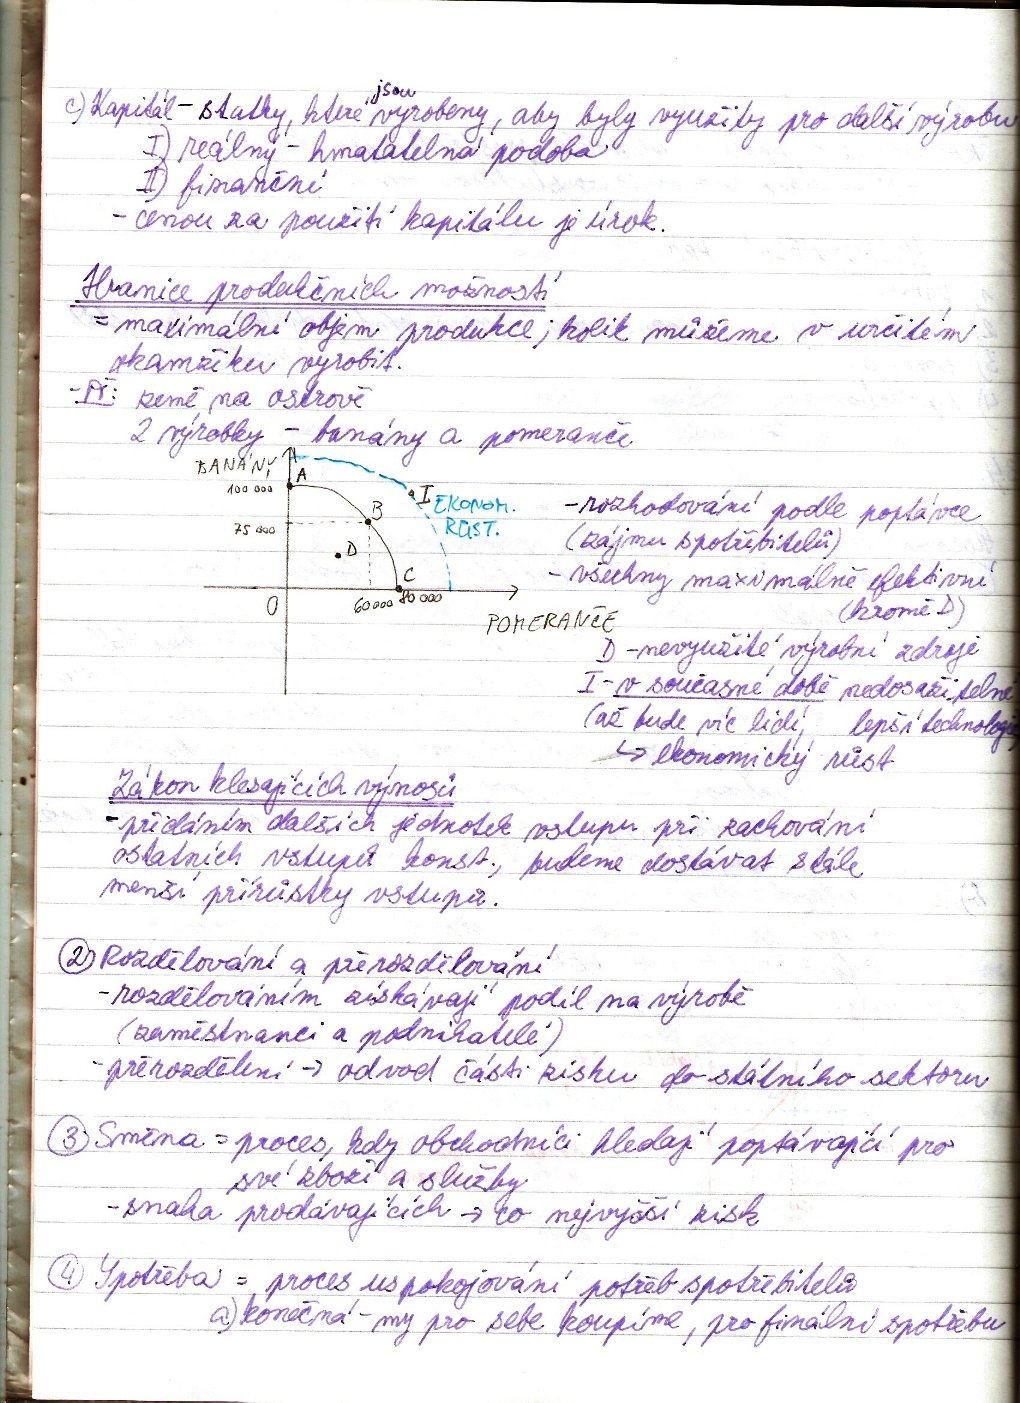 c) Kapitál - statky, které jsou vyrobeny, aby byly využity pro další výrobu
I) reálný - hmatatelná podoba
II) finanční
- cenou za použití kapitálu je úrok.
Hranice produkčních možností
= maximální objem produkce; kolik můžeme v určitém
okamžiku vyrobit.
- Př: země na ostrově
2 výrobky - banány a pomeranče
BANÁNY
A
100 000
I
EKONOM.
RŮST.
B
75 000
D
C
0
60 000 80 000
POMERANČE
- rozhodování podle poptávce
(zájmu spotřebitelů)
- všechny maximálně efektivní
(kromě D)
D - nevyužité výrobní zdroje
I - v současné době nedosažitelné
(až bude víc lidí, lepší technologie
↳ ekonomický růst
Zákon klesajících výnosů
- přidáním dalších jednotek vstupu při zachování
ostatních vstupů konst., budeme dostávat stále
menší přírůstky vstupů.
2) Rozdělování a přerozdělování
- rozdělováním získávají podíl na výrobě
(zaměstnanci a podnikatelé)
- přerozdělení → odvod části zisku do státního sektoru
3) Směna = proces, kdy obchodníci hledají poptávající pro
své zboží a služby
- snaha prodávajících → co nejvyšší zisk
4) Spotřeba = proces uspokojování potřeb spotřebitelů
a) konečná - my pro sebe koupíme, pro finální spotřebu